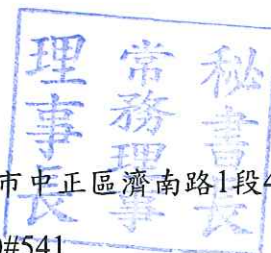 秘書長
常務理事
理事長
市中正區濟南路1段4
0#541